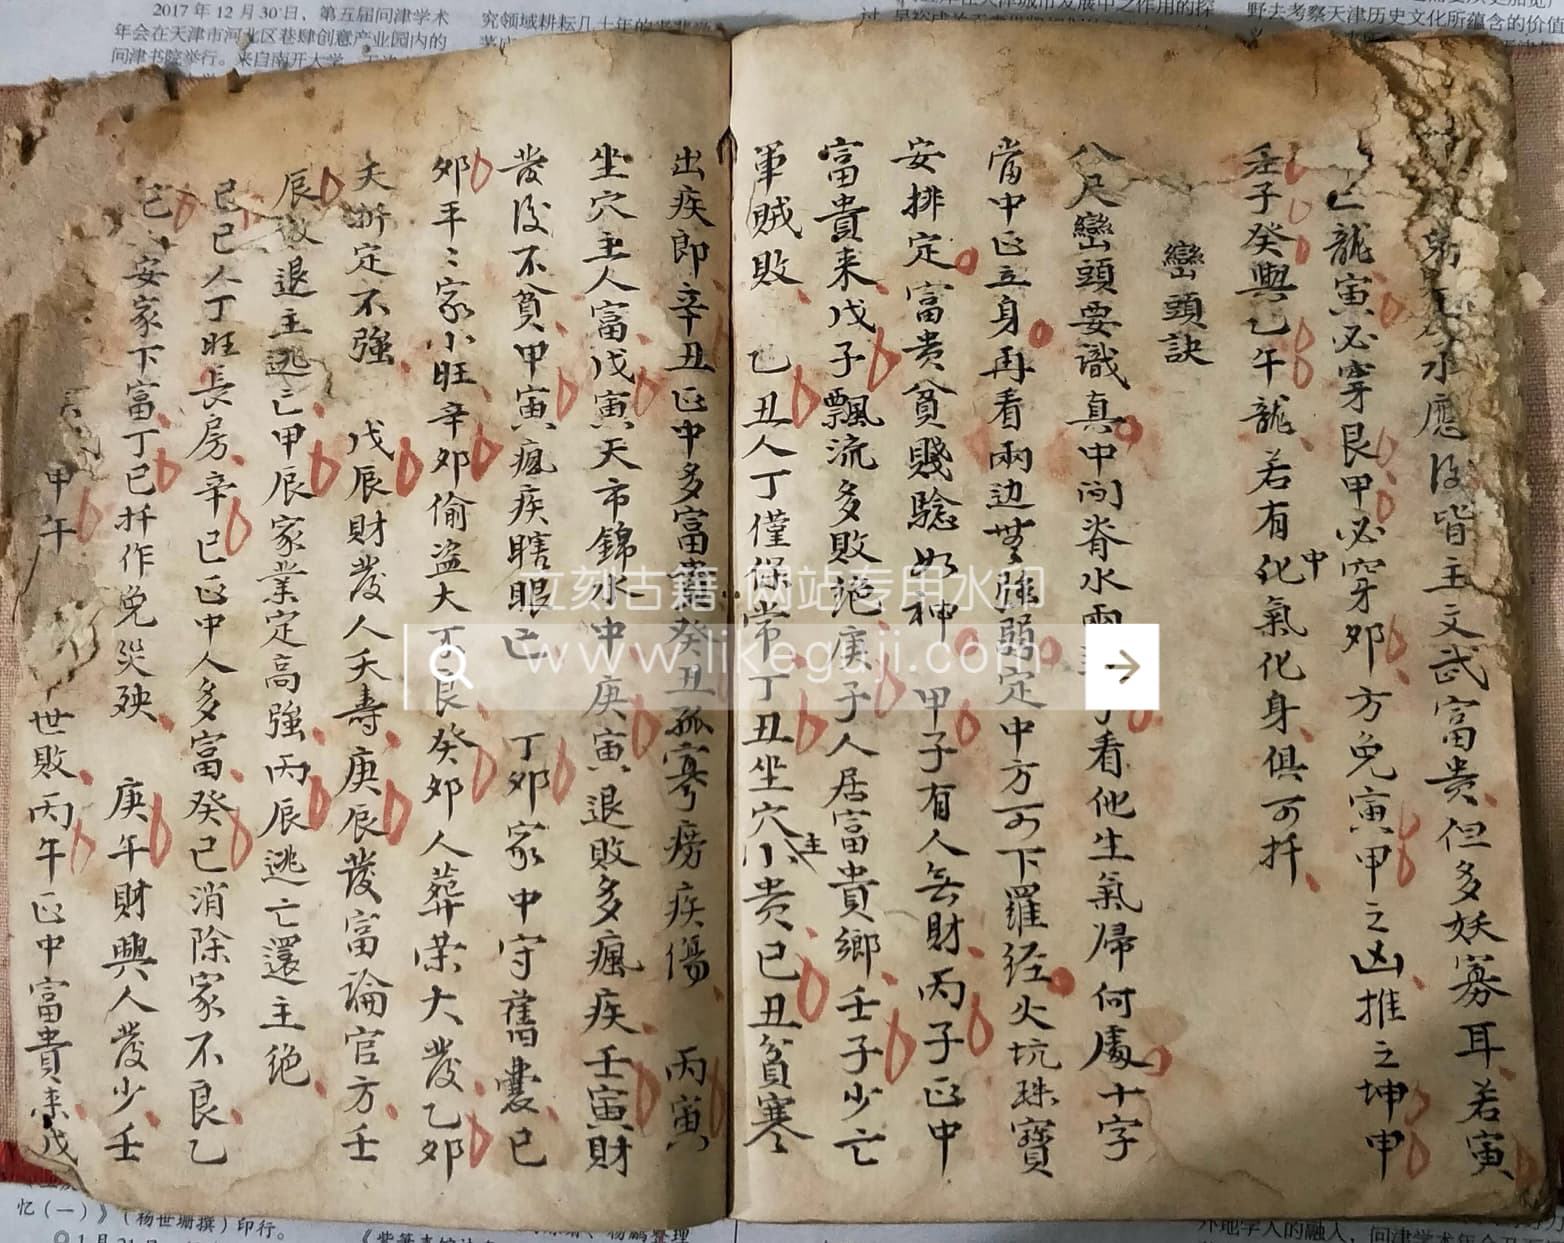 水應後皆主文武富贵但多妖寡耳若寅
龍寅必穿艮甲必穿夘方免寅甲之凶推之坤申
壬子癸與乙午龍若有化氣化身俱可扦
中
巒頭訣
巒頭要識真中间脊水兩看他生氣歸何處十字
當中正立身再看兩边無強弱定中方可下羅经火坑珠寶
安排定富贵貧賤騐如神 甲子有人無財丙子正中
富貴来戊子飄流多敗絶庚子人居富貴鄉壬子少亡
軍賊敗 乙丑人丁僅保常丁丑坐穴主小贵己丑貧寒
出疾郎辛丑正中多富貴癸丑孤寡痨疾傷 丙寅
坐穴主人富戊寅天市錦水中庚寅退敗多瘋疾壬寅財
發後不貧甲寅瘋疾瞎眼已 丁夘家中守舊業已
夘平二家小旺辛夘偷盗大不良癸夘人葬荣大發乙夘
夭折定不強 戊辰財發人夭壽庚辰發富論官方壬
辰敗退主逃亡甲辰家業定高強丙辰逃亡還主絶
己巳人丁旺長房辛巳正中人多富癸已消除家不良乙
巳安家下富丁已扦作免災殃 庚午財興人發少壬
甲午 世敗丙午正中富貴来戊
立刻古籍 网站专用水印
www.likeguji.com
2017年12月30日，第五届问津学术
年会在天津市河北区巷肆创意产业园内的
问津书院举行。来自南开大学
究领域耕耘几十年的
野去考察天津历史文化所蕴含的价值
忆（一）》（杨世珊撰）印行。